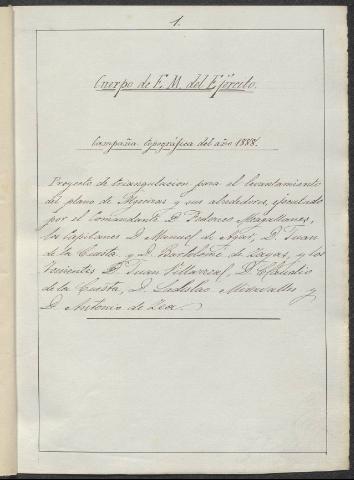 1.
Cuerpo de E. M. del Ejército.
Campaña topográfica del año 1888.
Proyecto de triangulacion para el levantamiento
del plano de Algeciras y sus alrededores, ejecutado
por el Comandante D. Federico Magallanes,
los Capitanes D. Manuel de Agar, D. Juan
de la Cuesta y D. Bartolomé de Zayas, y los
Tenientes D. Juan Villarreal, D. Claudio
de la Cuesta, D. Ladislao Miravalles y
D. Antonio de Zea.